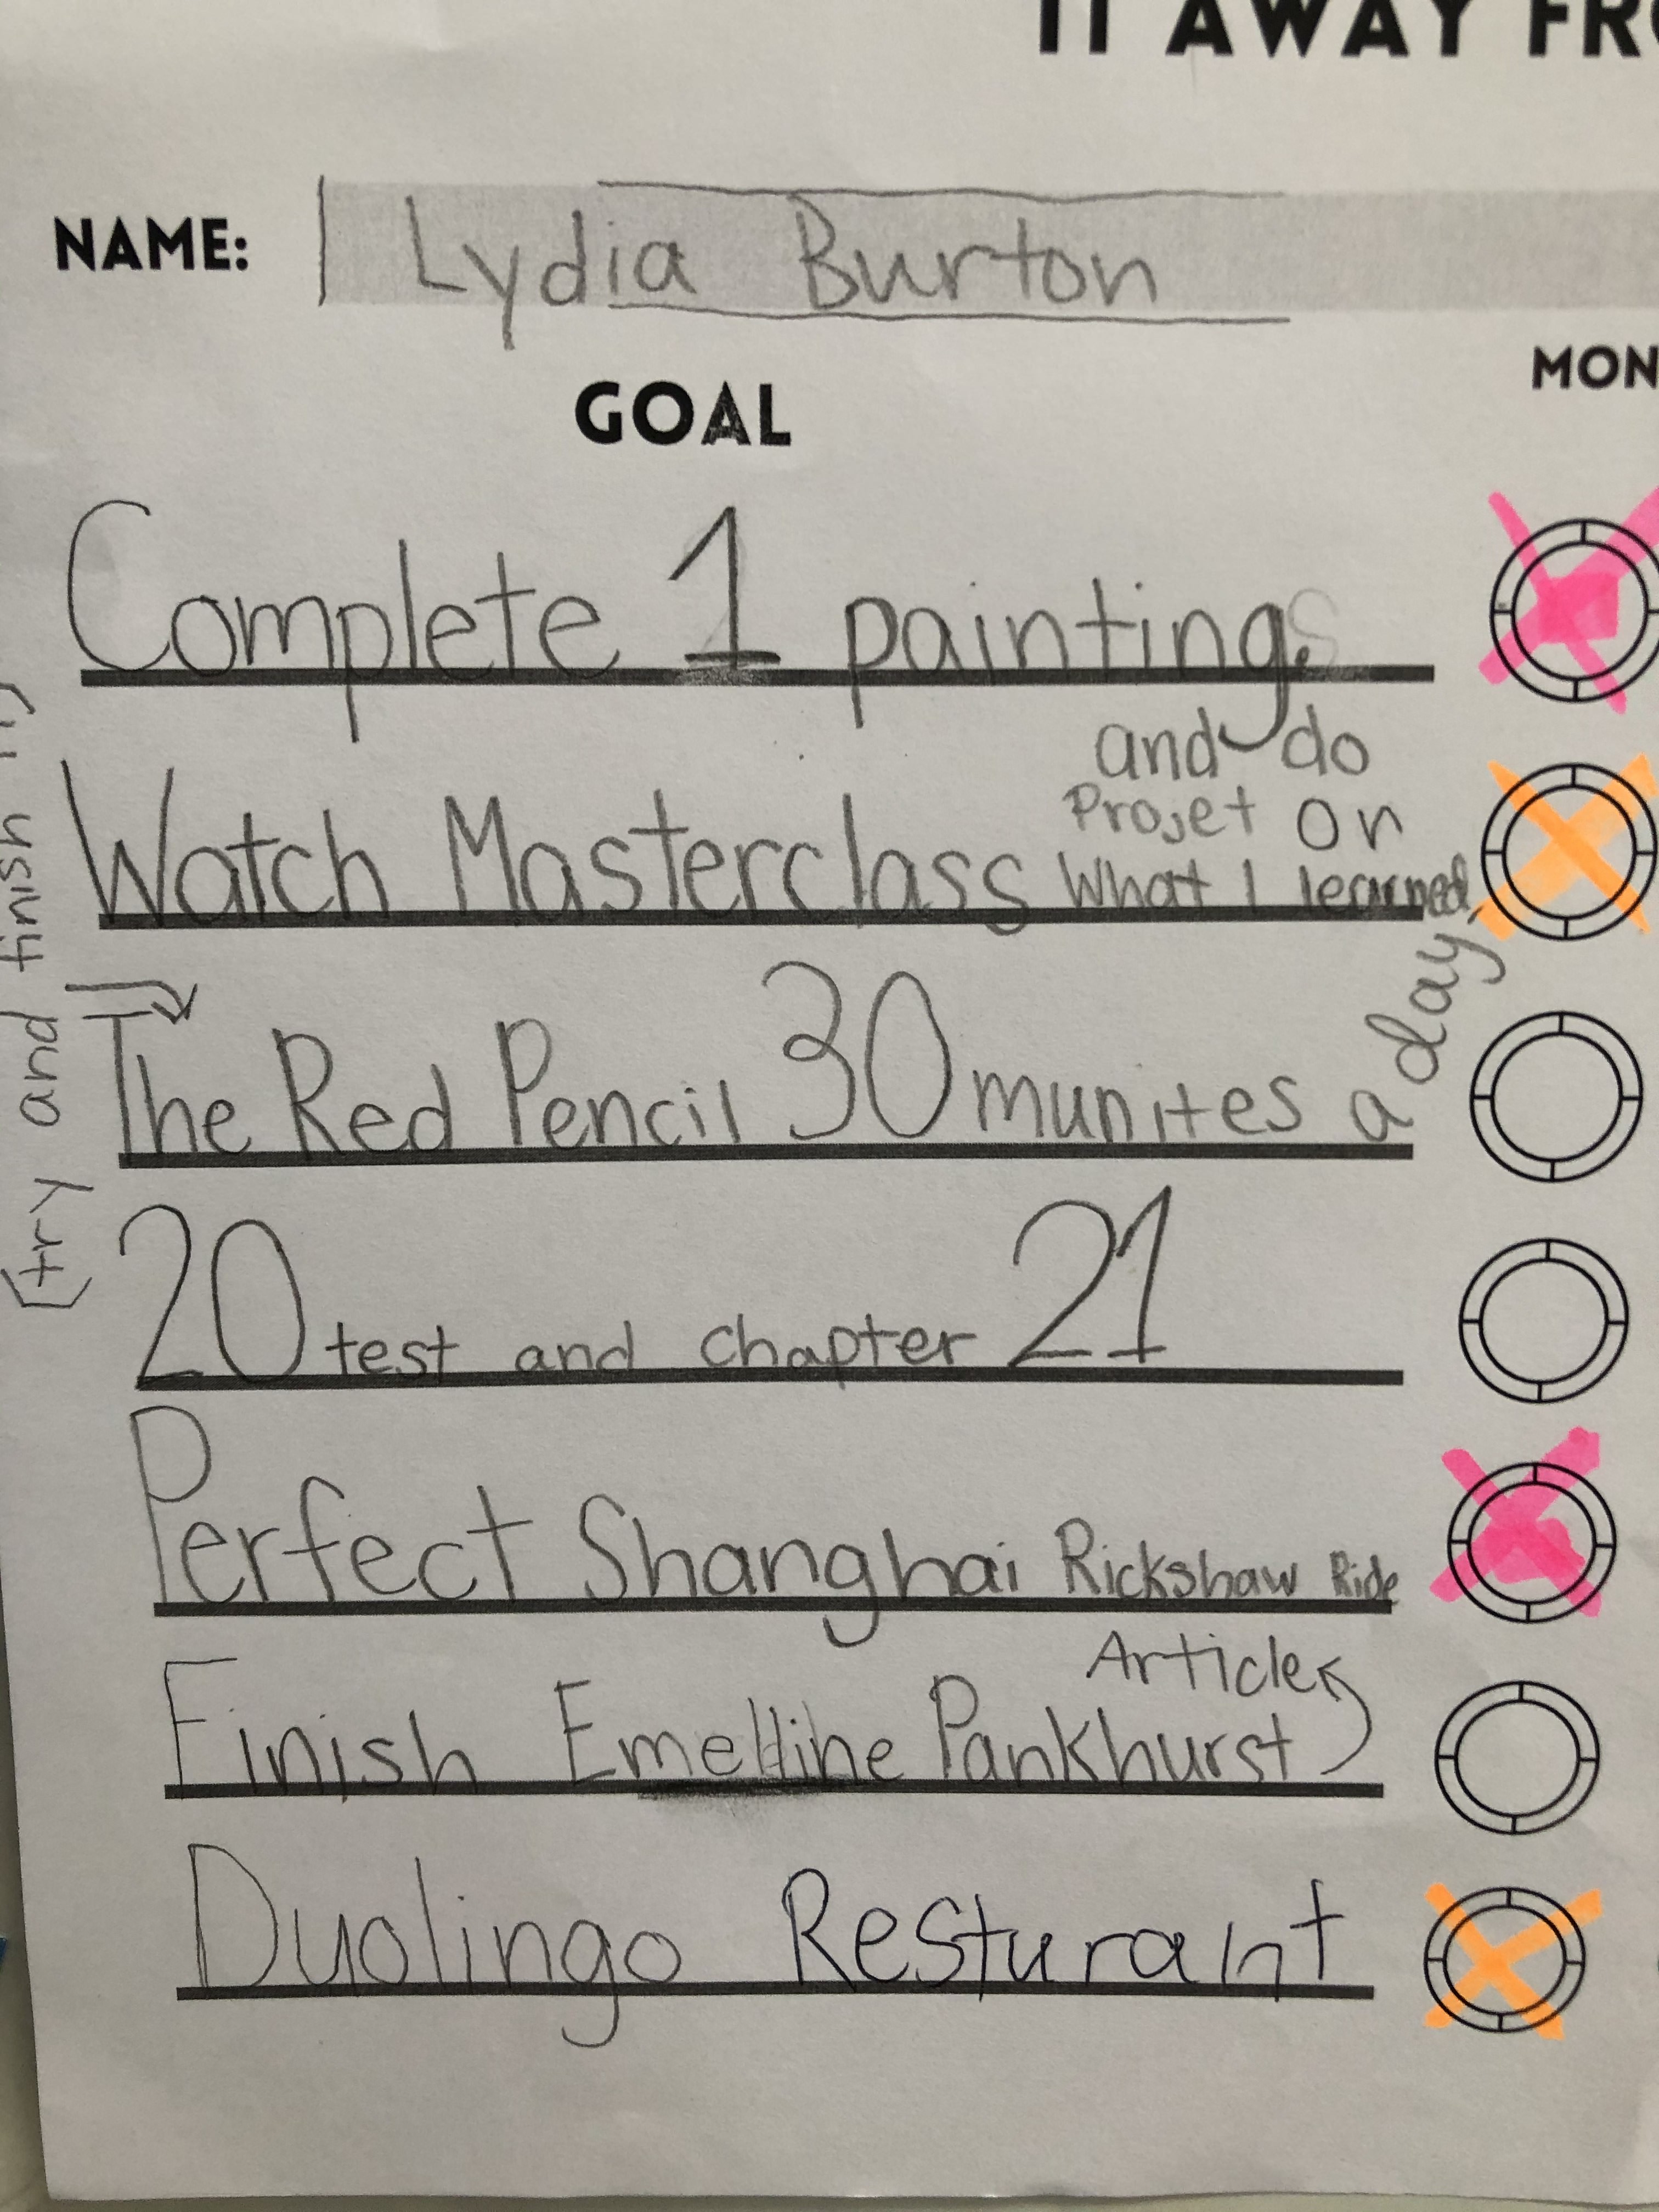 IT AWAY FR
NAME: Lydia Burton
GOAL
MON
Complete 1 painting.
Watch Masterclass and do
Projet on
What I learned.
(try and finish it)
The Red Pencil 30 munites a day
20 test and chapter 21
Perfect Shanghai Rickshaw Ride
Article
Finish Emelline Pankhurst
Duolingo Resturaint